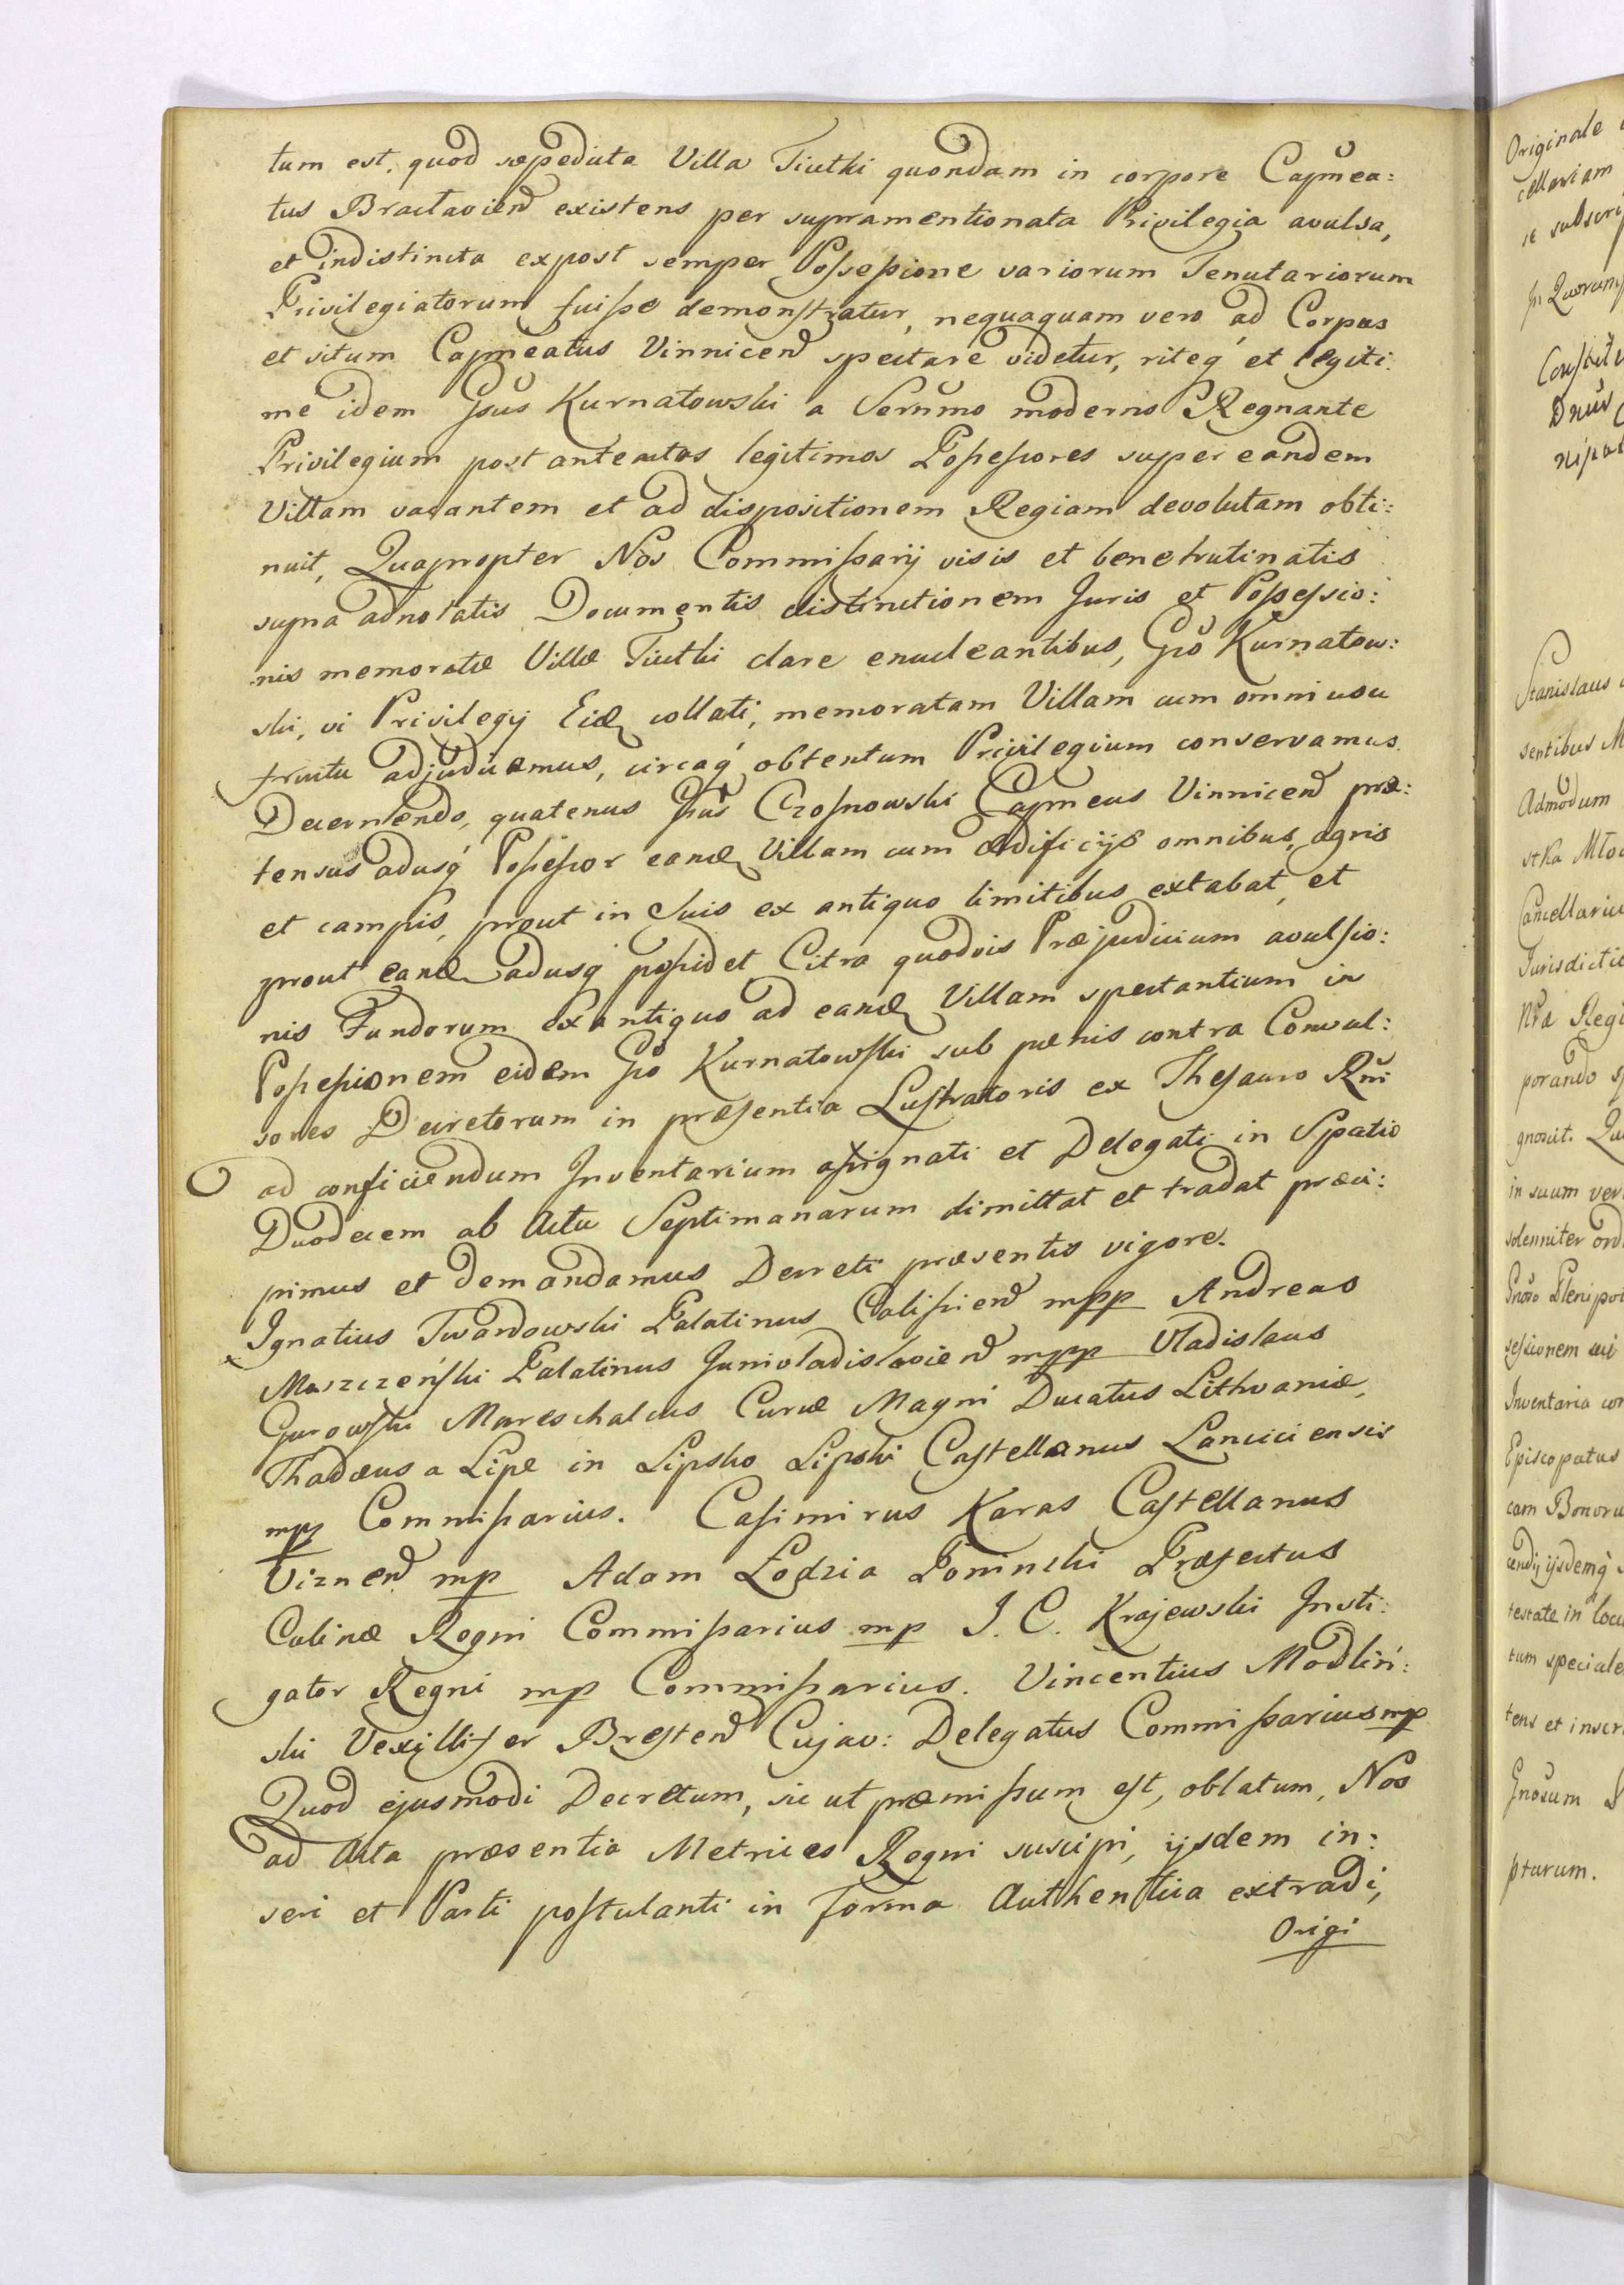 tum est, quod sæpedicta Villa Tiutki quondam in corpore Capnea:
tus Bractavień existens per supramentionata Privilegia avulsa,
et indistincta expost semper Possessione variorum Tenutariorum
Privilegiatorum fuisse demonstratur, nequaquam vero ad Corpus
et situm Capneatus Vinnicen̄ spectare videtur, riteq́ et legiti:
me idem Gsus Kurnatowski a Sernmo moderno Regnante
Privilegium post anteactos legitimos Possessores super eandem
Villam vacantem et ad dispositionem Regiam devolutam obti:
nuit, Quapropter Nos Commissarij visis et bene trutinatis
supra adnotatis Documentis distinctionem Juris et Possessio:
nis memoratæ Villæ Tiutki clare enucleantibus, Gso Kurnatow:
ski, vi Privilegij Eid collati, memoratam Villam cum omni usu
fructu adjudicamus, circaq́ obtentum Privilegium conservamus.
Decernendo, quatenus Gsus Czosnowski Capneus Vinnicen̄ præ:
tensus adusq́ Possessor eand Villam cum ædificijs omnibus, agris
et campis, prout in suis ex antiquo limitibus extabat, et
prout eand adusq́ possidet Citra quodvis Præjudicium avulsio:
nis Fundorum ex antiquo ad eand Villam spectantium in
Possessionem eidem Gso Kurnatowski sub pænis contra Convul:
sores Decretorum in præsentia Lustratoris ex Thesauro Rni
ad conficiendum Inventarium assignati et Delegati in Spatio
Duodecem ab Actu Septimanarum dimittat et tradat præci:
pimus et demandamus Decreti præsentis vigore.
Ignatius Twardowski Palatinus Calissien̄ mpp Andreas
Moszczeński Palatinus Junivladislavien̄ mpp Vladislaus
Gurowski Mareschalcus Curiæ Magni Ducatus Lithvaniæ,
Thadæus a Lipe in Lipsko Lipski Castellanus Lanciciensis
mpp Commissarius. Casimirus Karas Castellanus
Viznen̄ mp Adam Łodzia Poninski Præfectus
Culinæ Regni Commissarius mp J. C. Krajewski Insti:
gator Regni mp Commissarius. Vincentius Modliń:
ski Vexillifer Bresten̄ Cujav: Delegatus Commissarius mp
Quod ejusmodi Decretum, sic ut præmissum est, oblatum, Nos
ad Acta præsentia Metrices Regni suscipi, ijsdem in:
seri et Parti postulanti in forma Authentica extradi,
Origi
Originale
cellariam
se subscrip
In Quorum
Constit
Dnus
Stanislaus
sentibus M
Admodum
stka Mło
Cancellariu
Jurisdictio
Nra Regi
porando
gnovit. Qu
in suum ver
solenniter ord
Gnoso Plenipot
sessionem sui
Inventaria con
Episcopatus
cam Bonoru
cendi, ijsdemq́
testate in locu
tum speciale
tens et inscr
Gnosum
pturum.